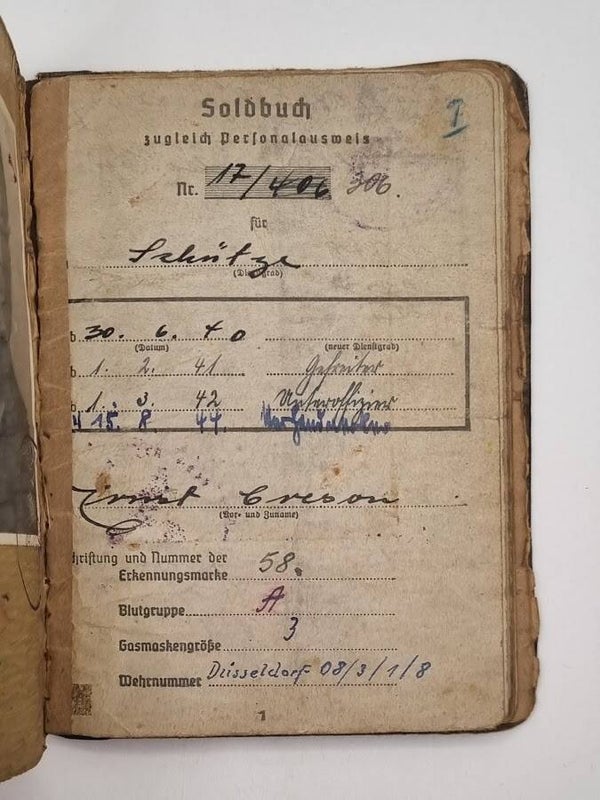 Soldbuch
zugleich Personalausweis
Nr. 17/406 306.
für
Schütze
(Dienstgrad)
b 30. 6. 40
(Datum) (neuer Dienstgrad)
b 1. 2. 41 Gefreiter
b 1. 3. 42 Unteroffizier
15. 8. 44.
Ernst Creson
(Vor- und Zuname)
hriftung und Nummer der
Erkennungsmarke 58.
Blutgruppe A
Gasmaskengröße 3
Wehrnummer Düsseldorf 08/3/1/8
1